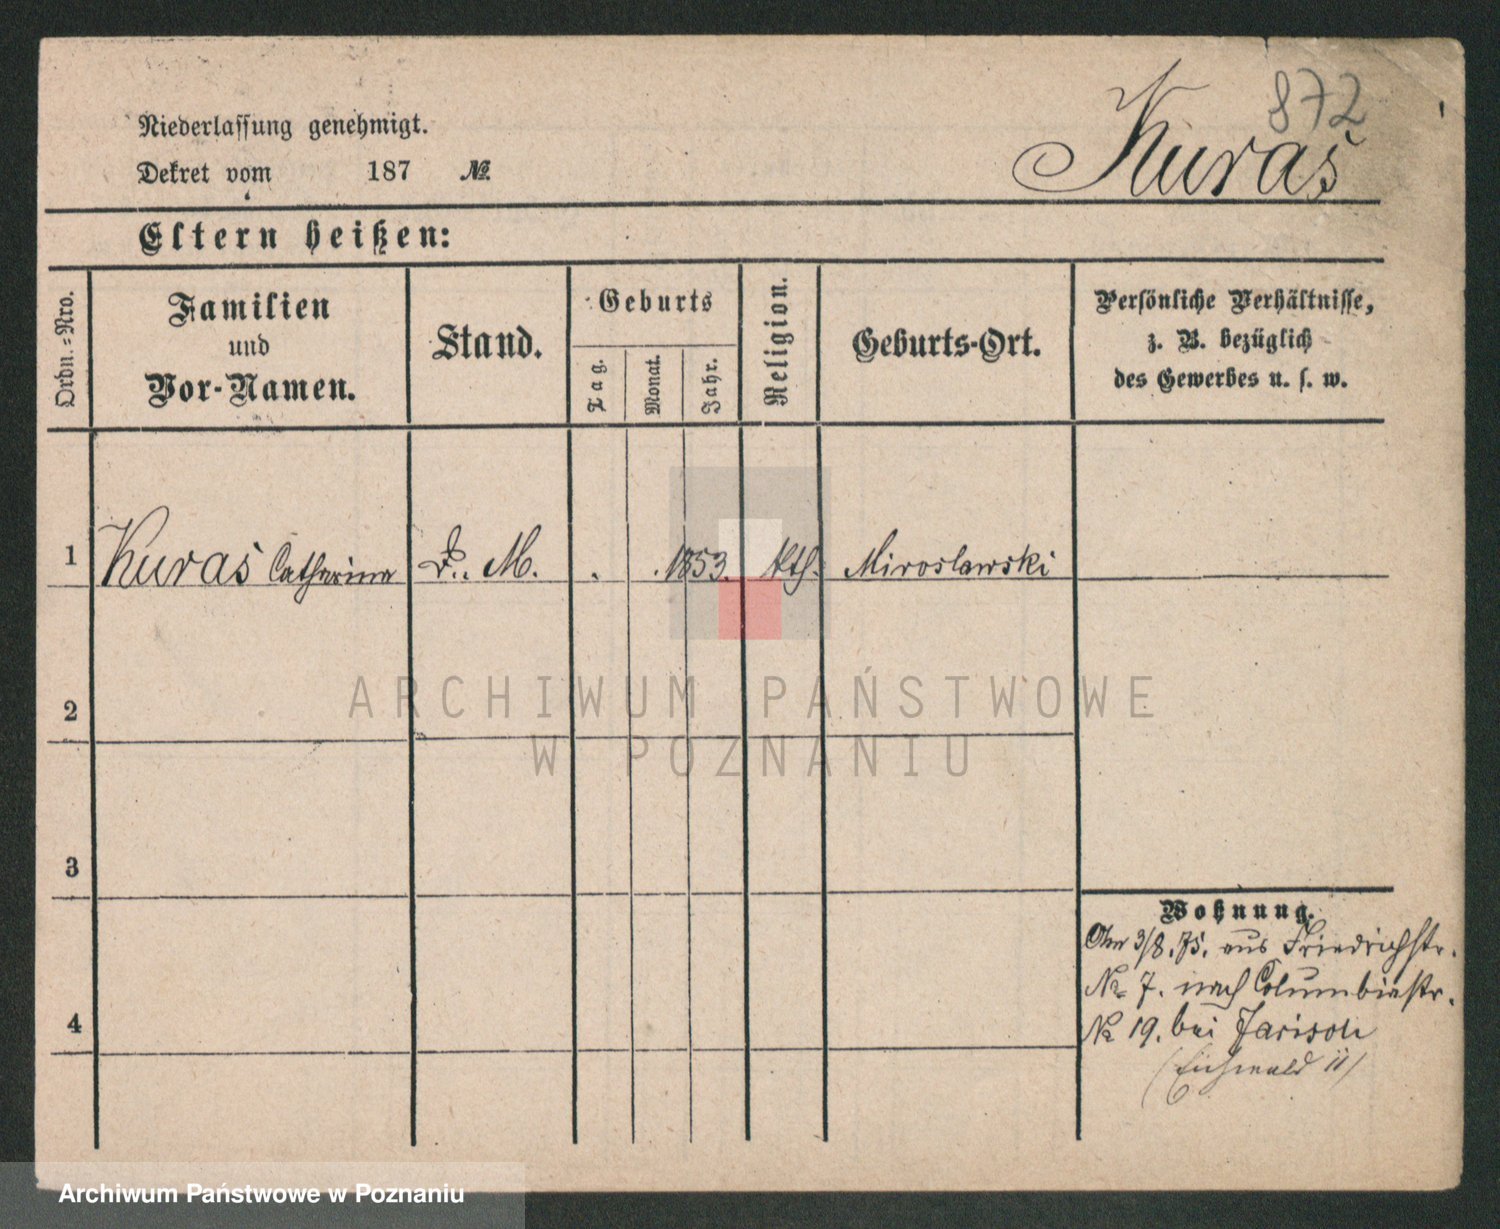 872
Kuraś
Niederlassung genehmigt.
Dekret vom 187 №
Eltern heißen:
Ordn.-Nro.
Familien
und
Vor-Namen.
Stand.
Geburts
Tag.
Monat.
Jahr.
Religion.
Geburts-Ort.
Persönliche Verhältnisse,
z. B. bezüglich
des Gewerbes u. s. w.
1 Kuraś Catharina D. M. . . 1853. kth. Miroslawski
2
3
4
Wohnung.
Am 3/8.75. aus Friedrichstr.
№ 7. nach Columbiastr.
№ 19. bei
(Eichwald
ARCHIWUM PAŃSTWOWE
W POZNANIU
Archiwum Państwowe w Poznaniu